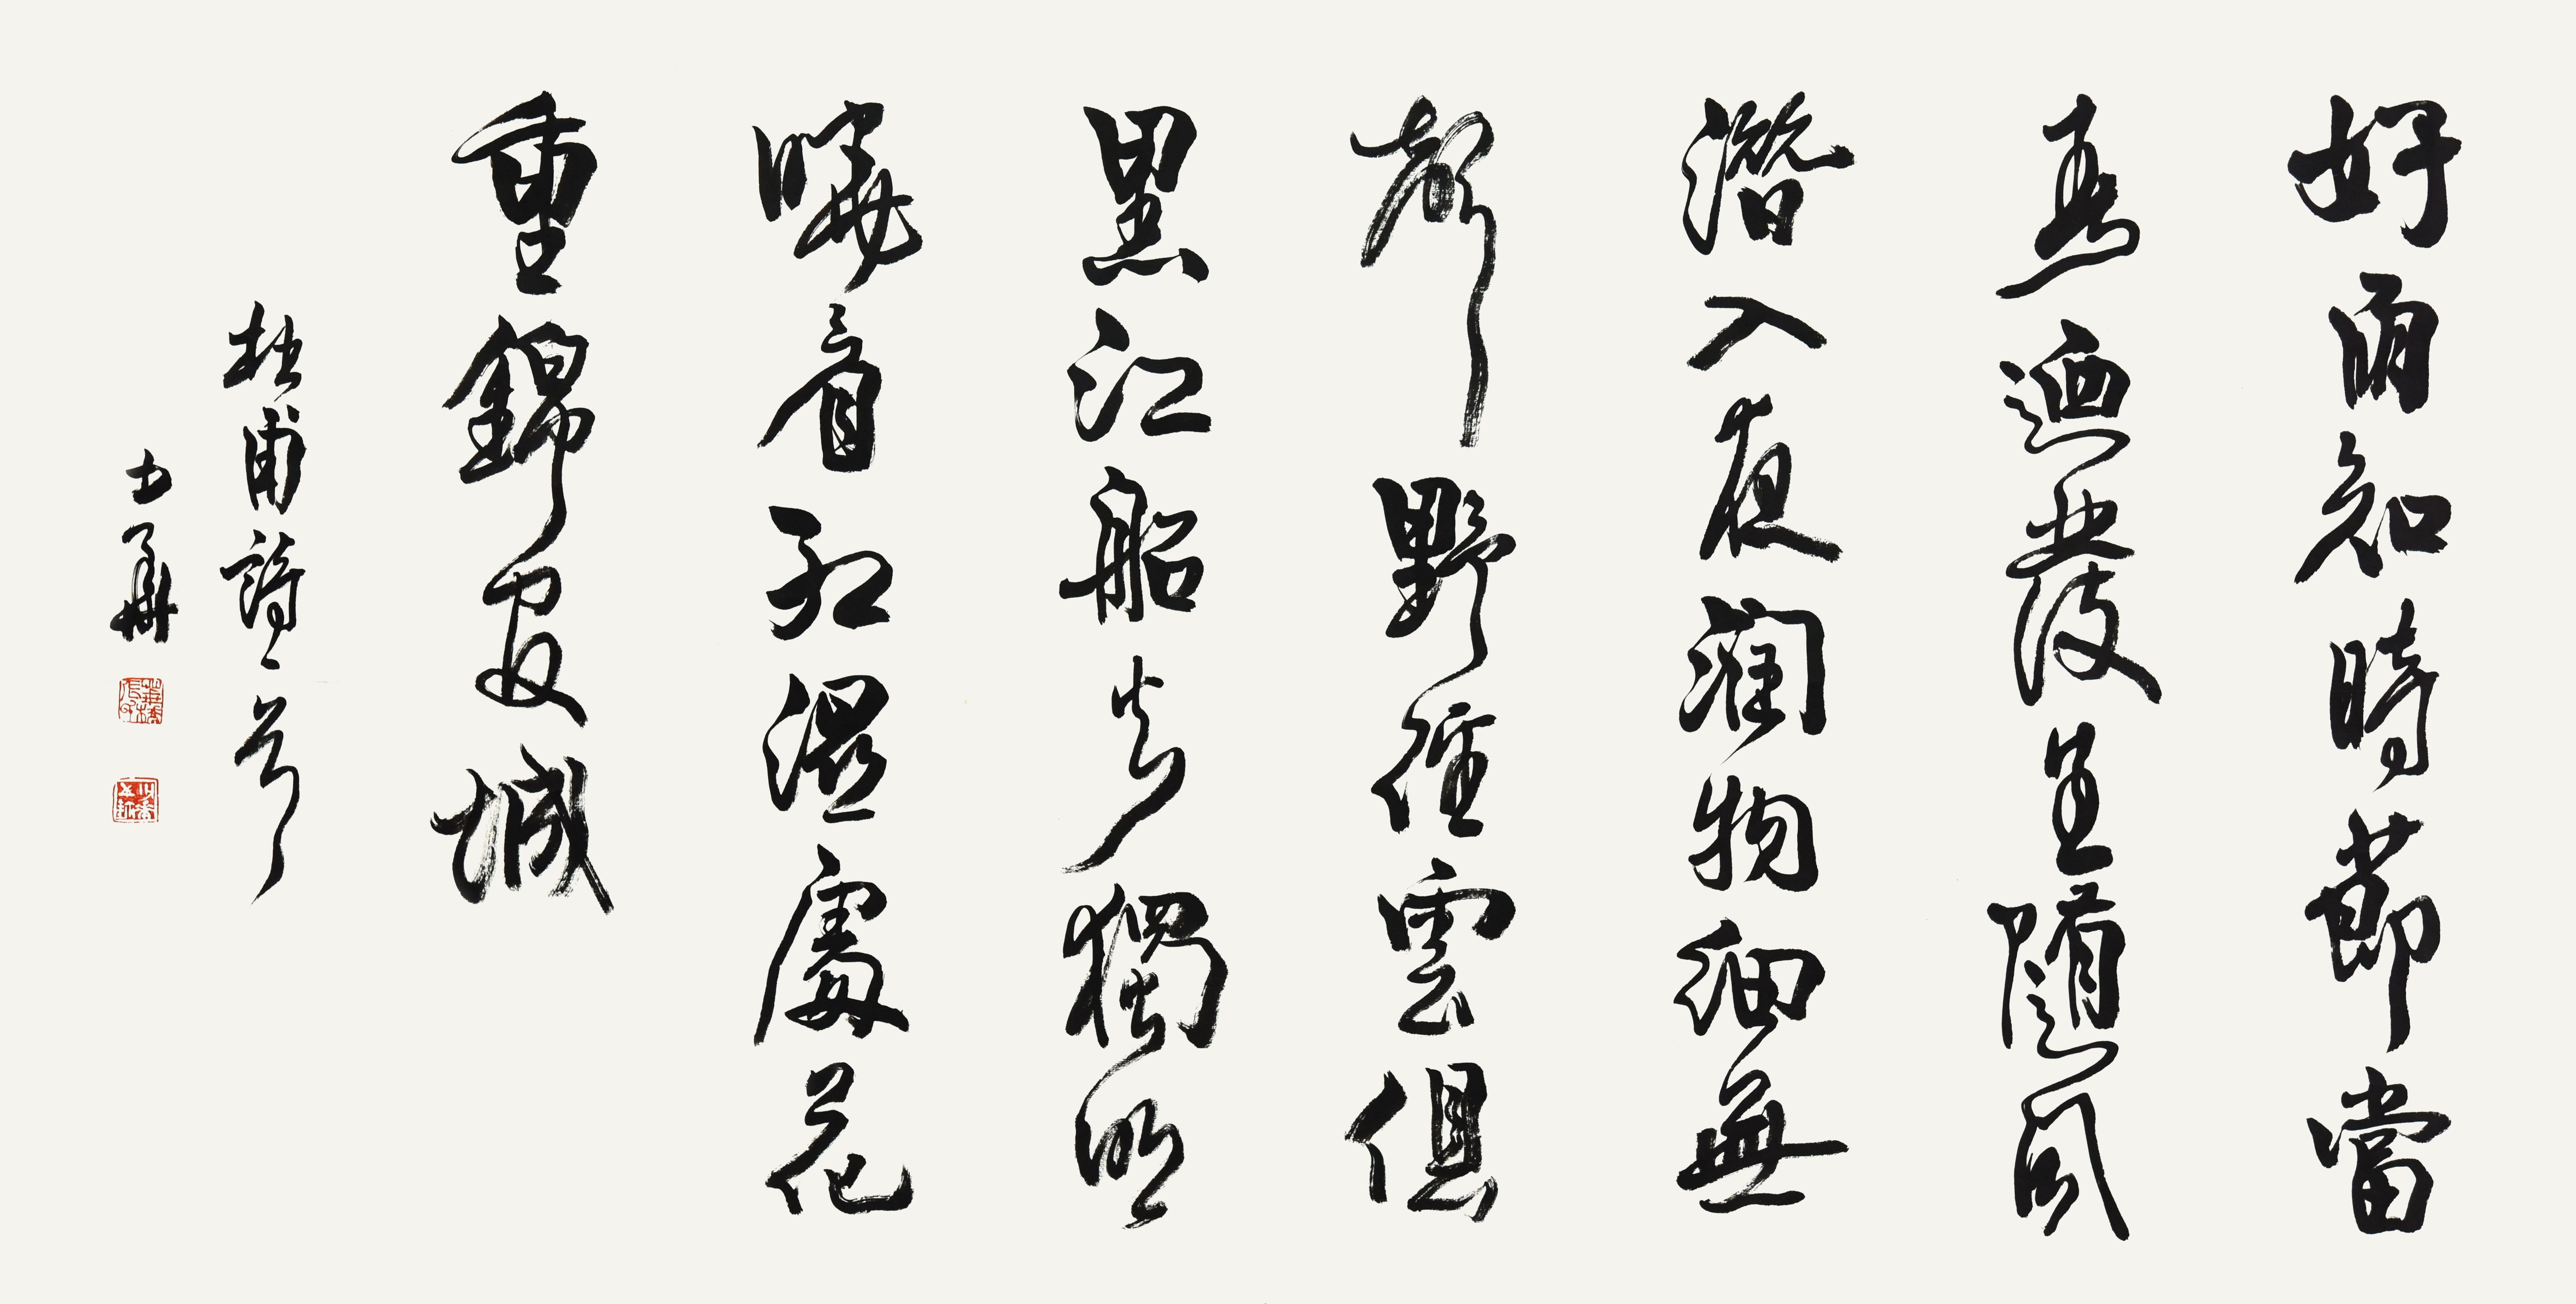 好雨知時節當
春迺發生隨風
潛入夜润物細無
聲野徑雲俱
黑江船火獨明
曉看紅濕處花
重錦官城
杜甫詩一首
士華